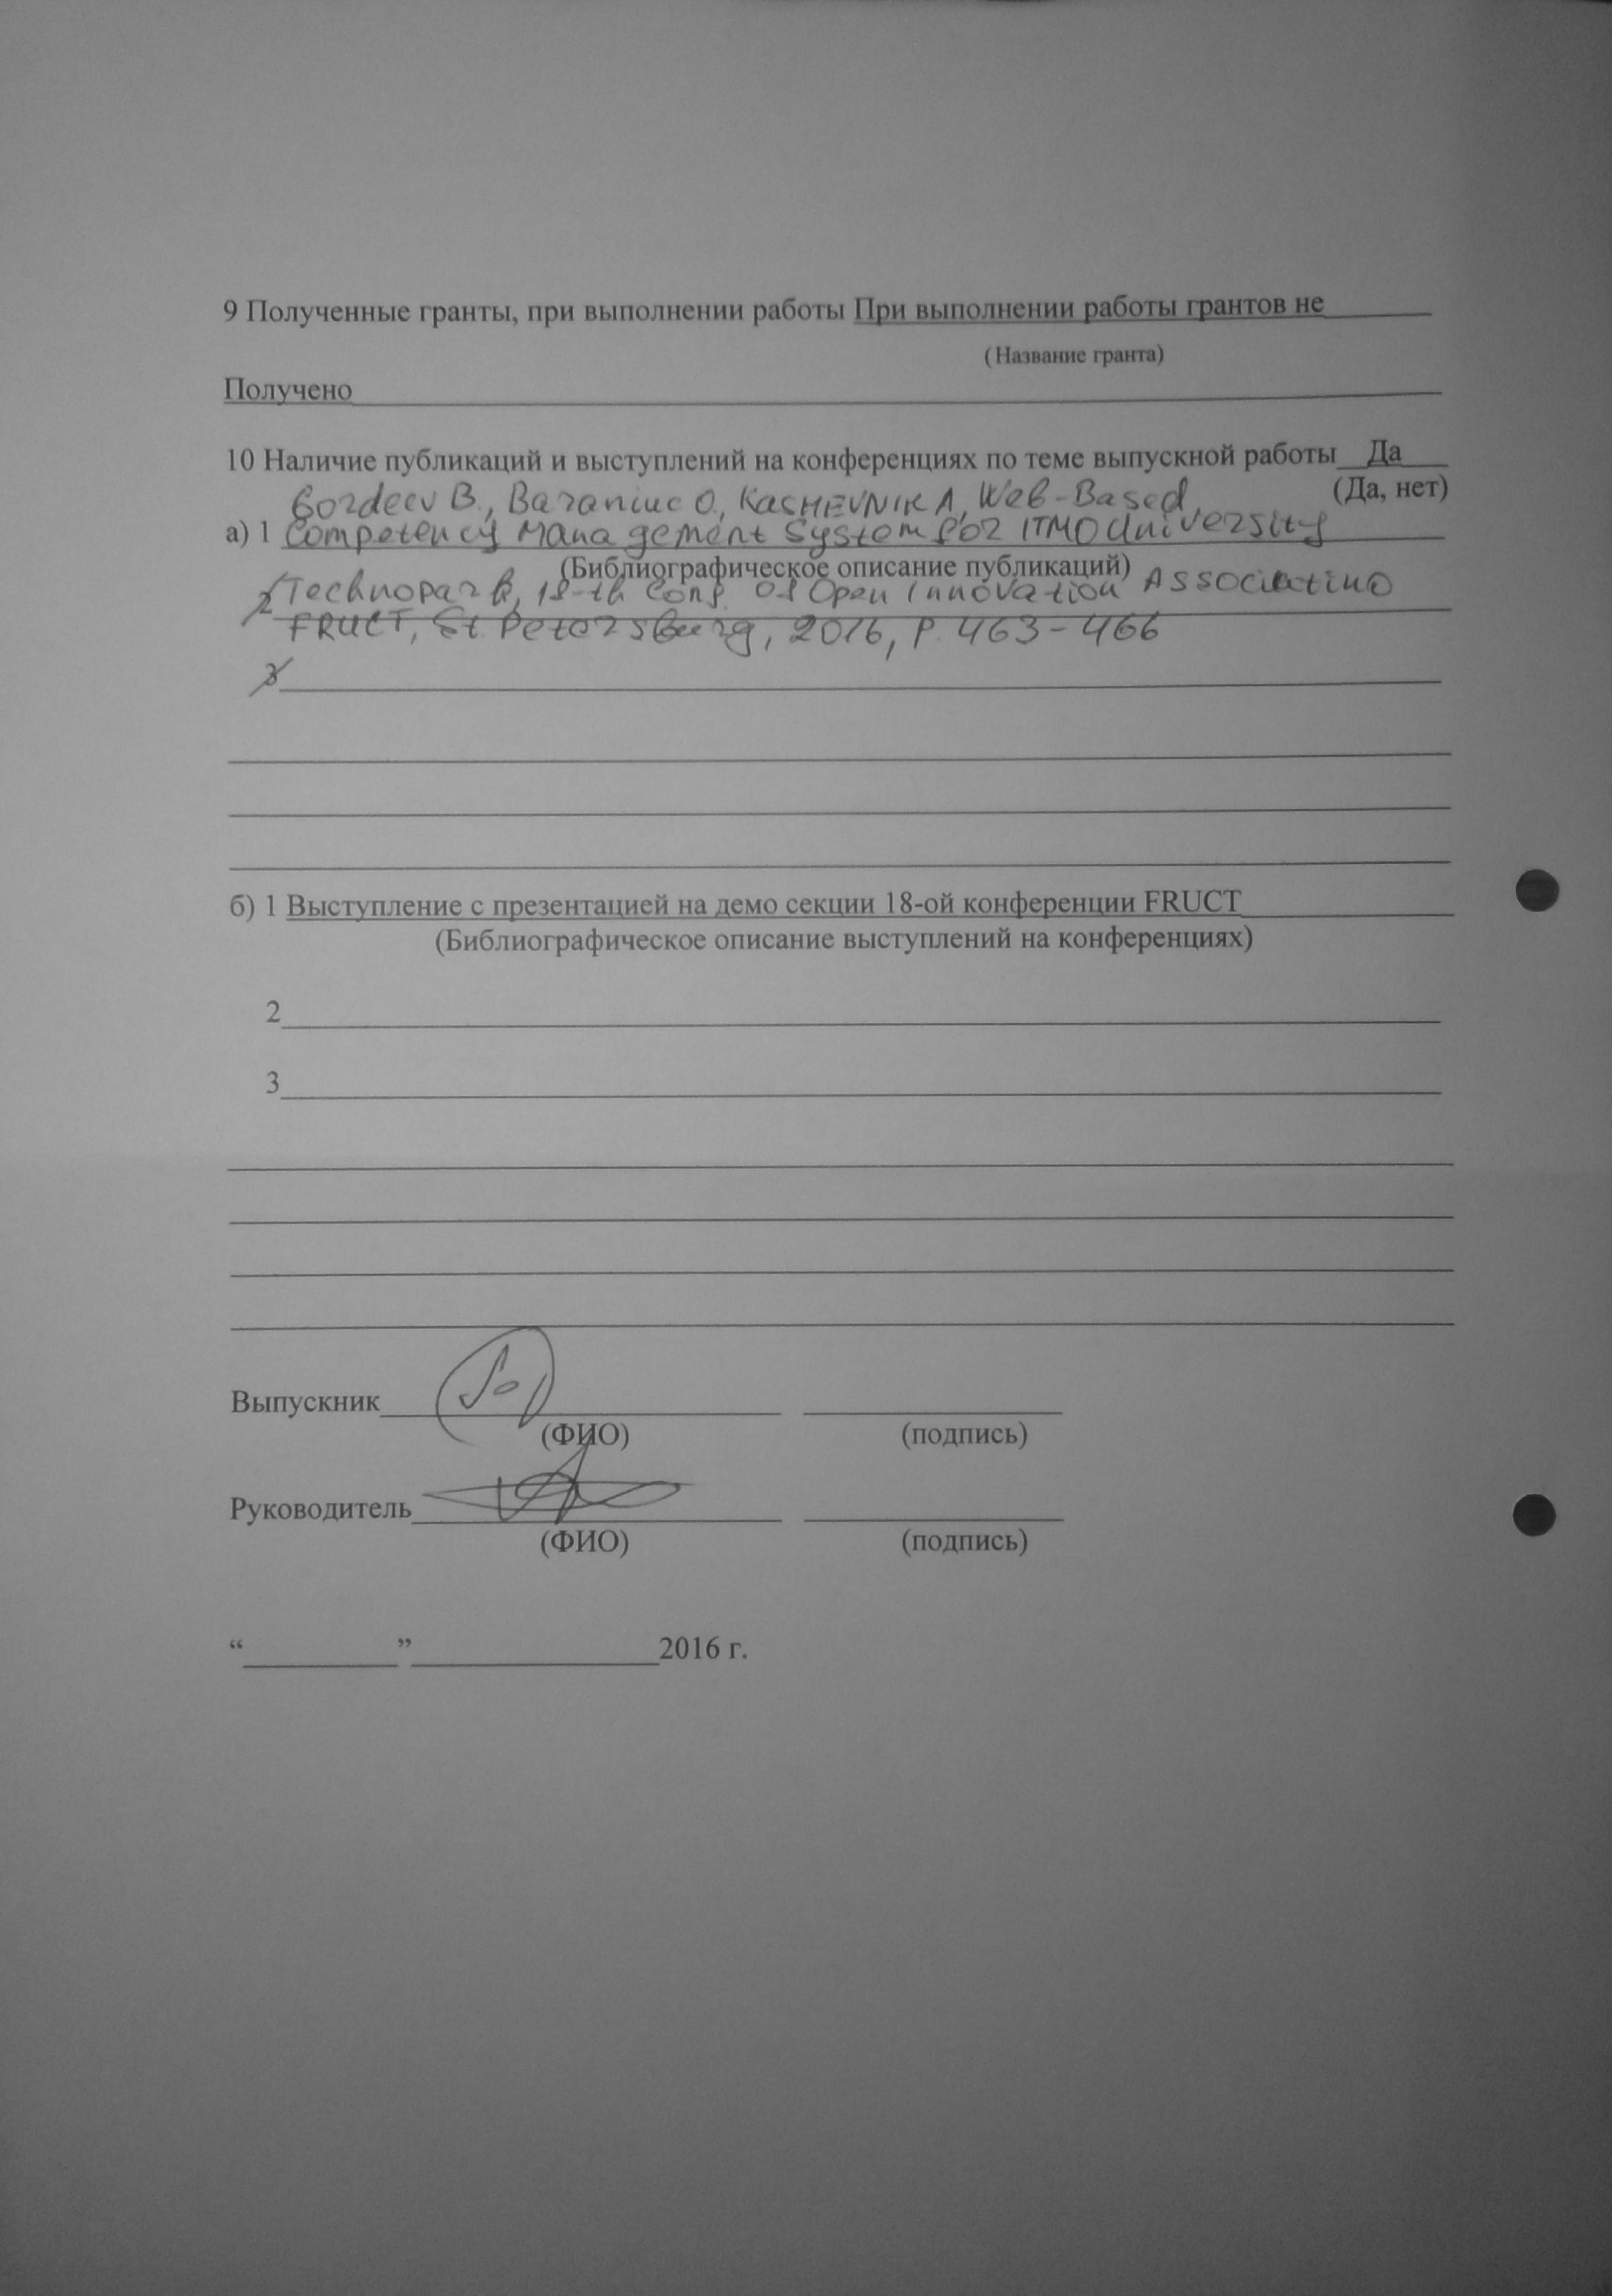 9 Полученные гранты, при выполнении работы При выполнении работы грантов не
(Название гранта)
Получено
10 Наличие публикаций и выступлений на конференциях по теме выпускной работы Да
(Да, нет)
Gordeev B., Baraniuc O., KASHEVNIK A, Web-Based
а) 1 Competency Management System for ITMO University
(Библиографическое описание публикаций)
2 Technopark, 18-th Conf. Of Open Innovation Associatino
FRUCT, St. Petersburg, 2016, P. 463-466
3
б) 1 Выступление с презентацией на демо секции 18-ой конференции FRUCT
(Библиографическое описание выступлений на конференциях)
2
3
Выпускник
(ФИО) (подпись)
Руководитель
(ФИО) (подпись)
“ ” 2016 г.